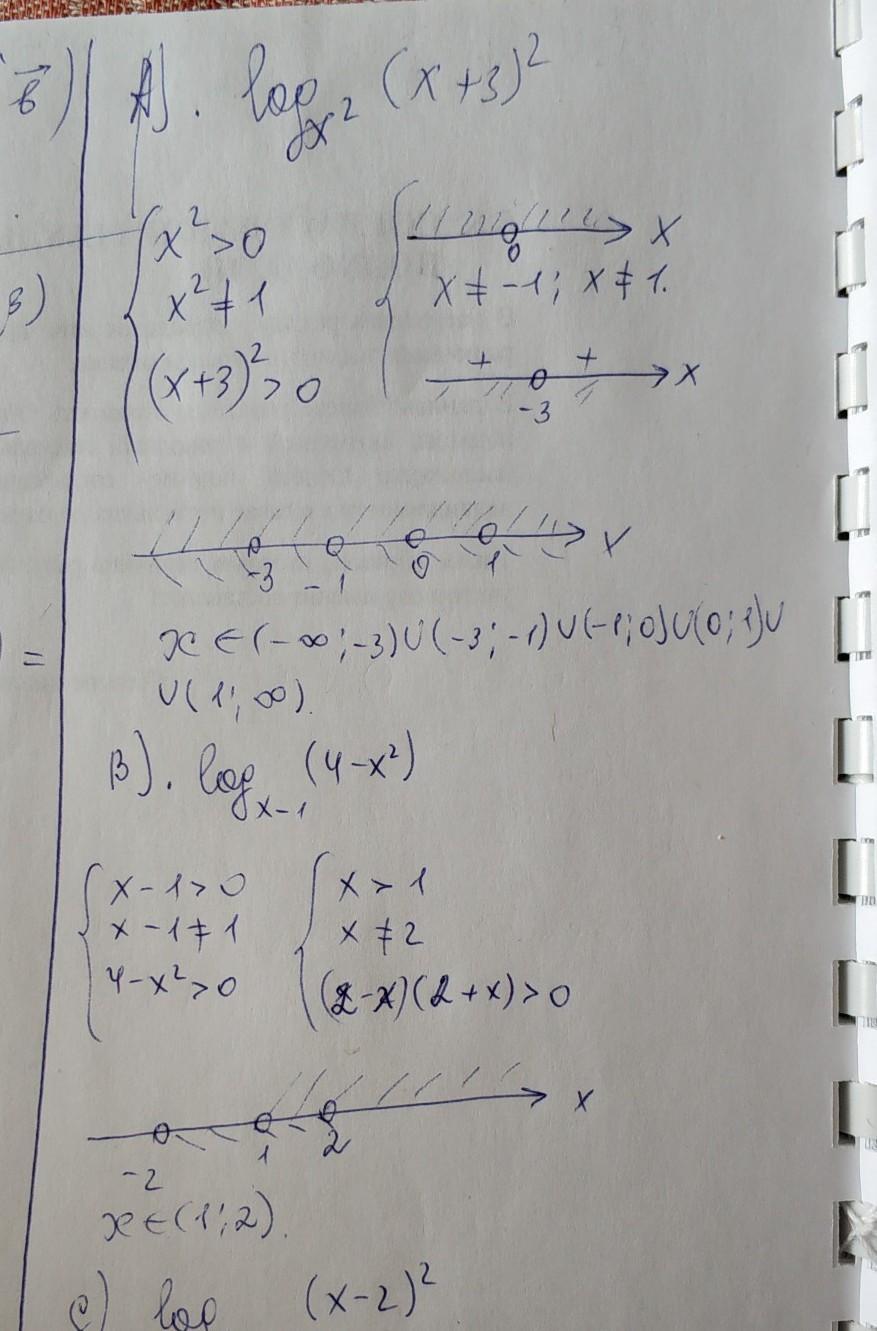 в⃗)
A). log_x² (x+3)²
{ x² > 0
x² ≠ 1
(x+3)² > 0
{ 0 x
x ≠ -1; x ≠ 1.
+ + x
-3
-3 -1 0 1 x
x ∈ (-∞; -3) ∪ (-3; -1) ∪ (-1; 0) ∪ (0; 1) ∪
∪ (1; ∞).
B). log_x-1 (4-x²)
{ x - 1 > 0
x - 1 ≠ 1
4-x² > 0
{ x > 1
x ≠ 2
(2-x)(2+x) > 0
-2 1 2 x
x ∈ (1; 2).
C) log (x-2)²
=